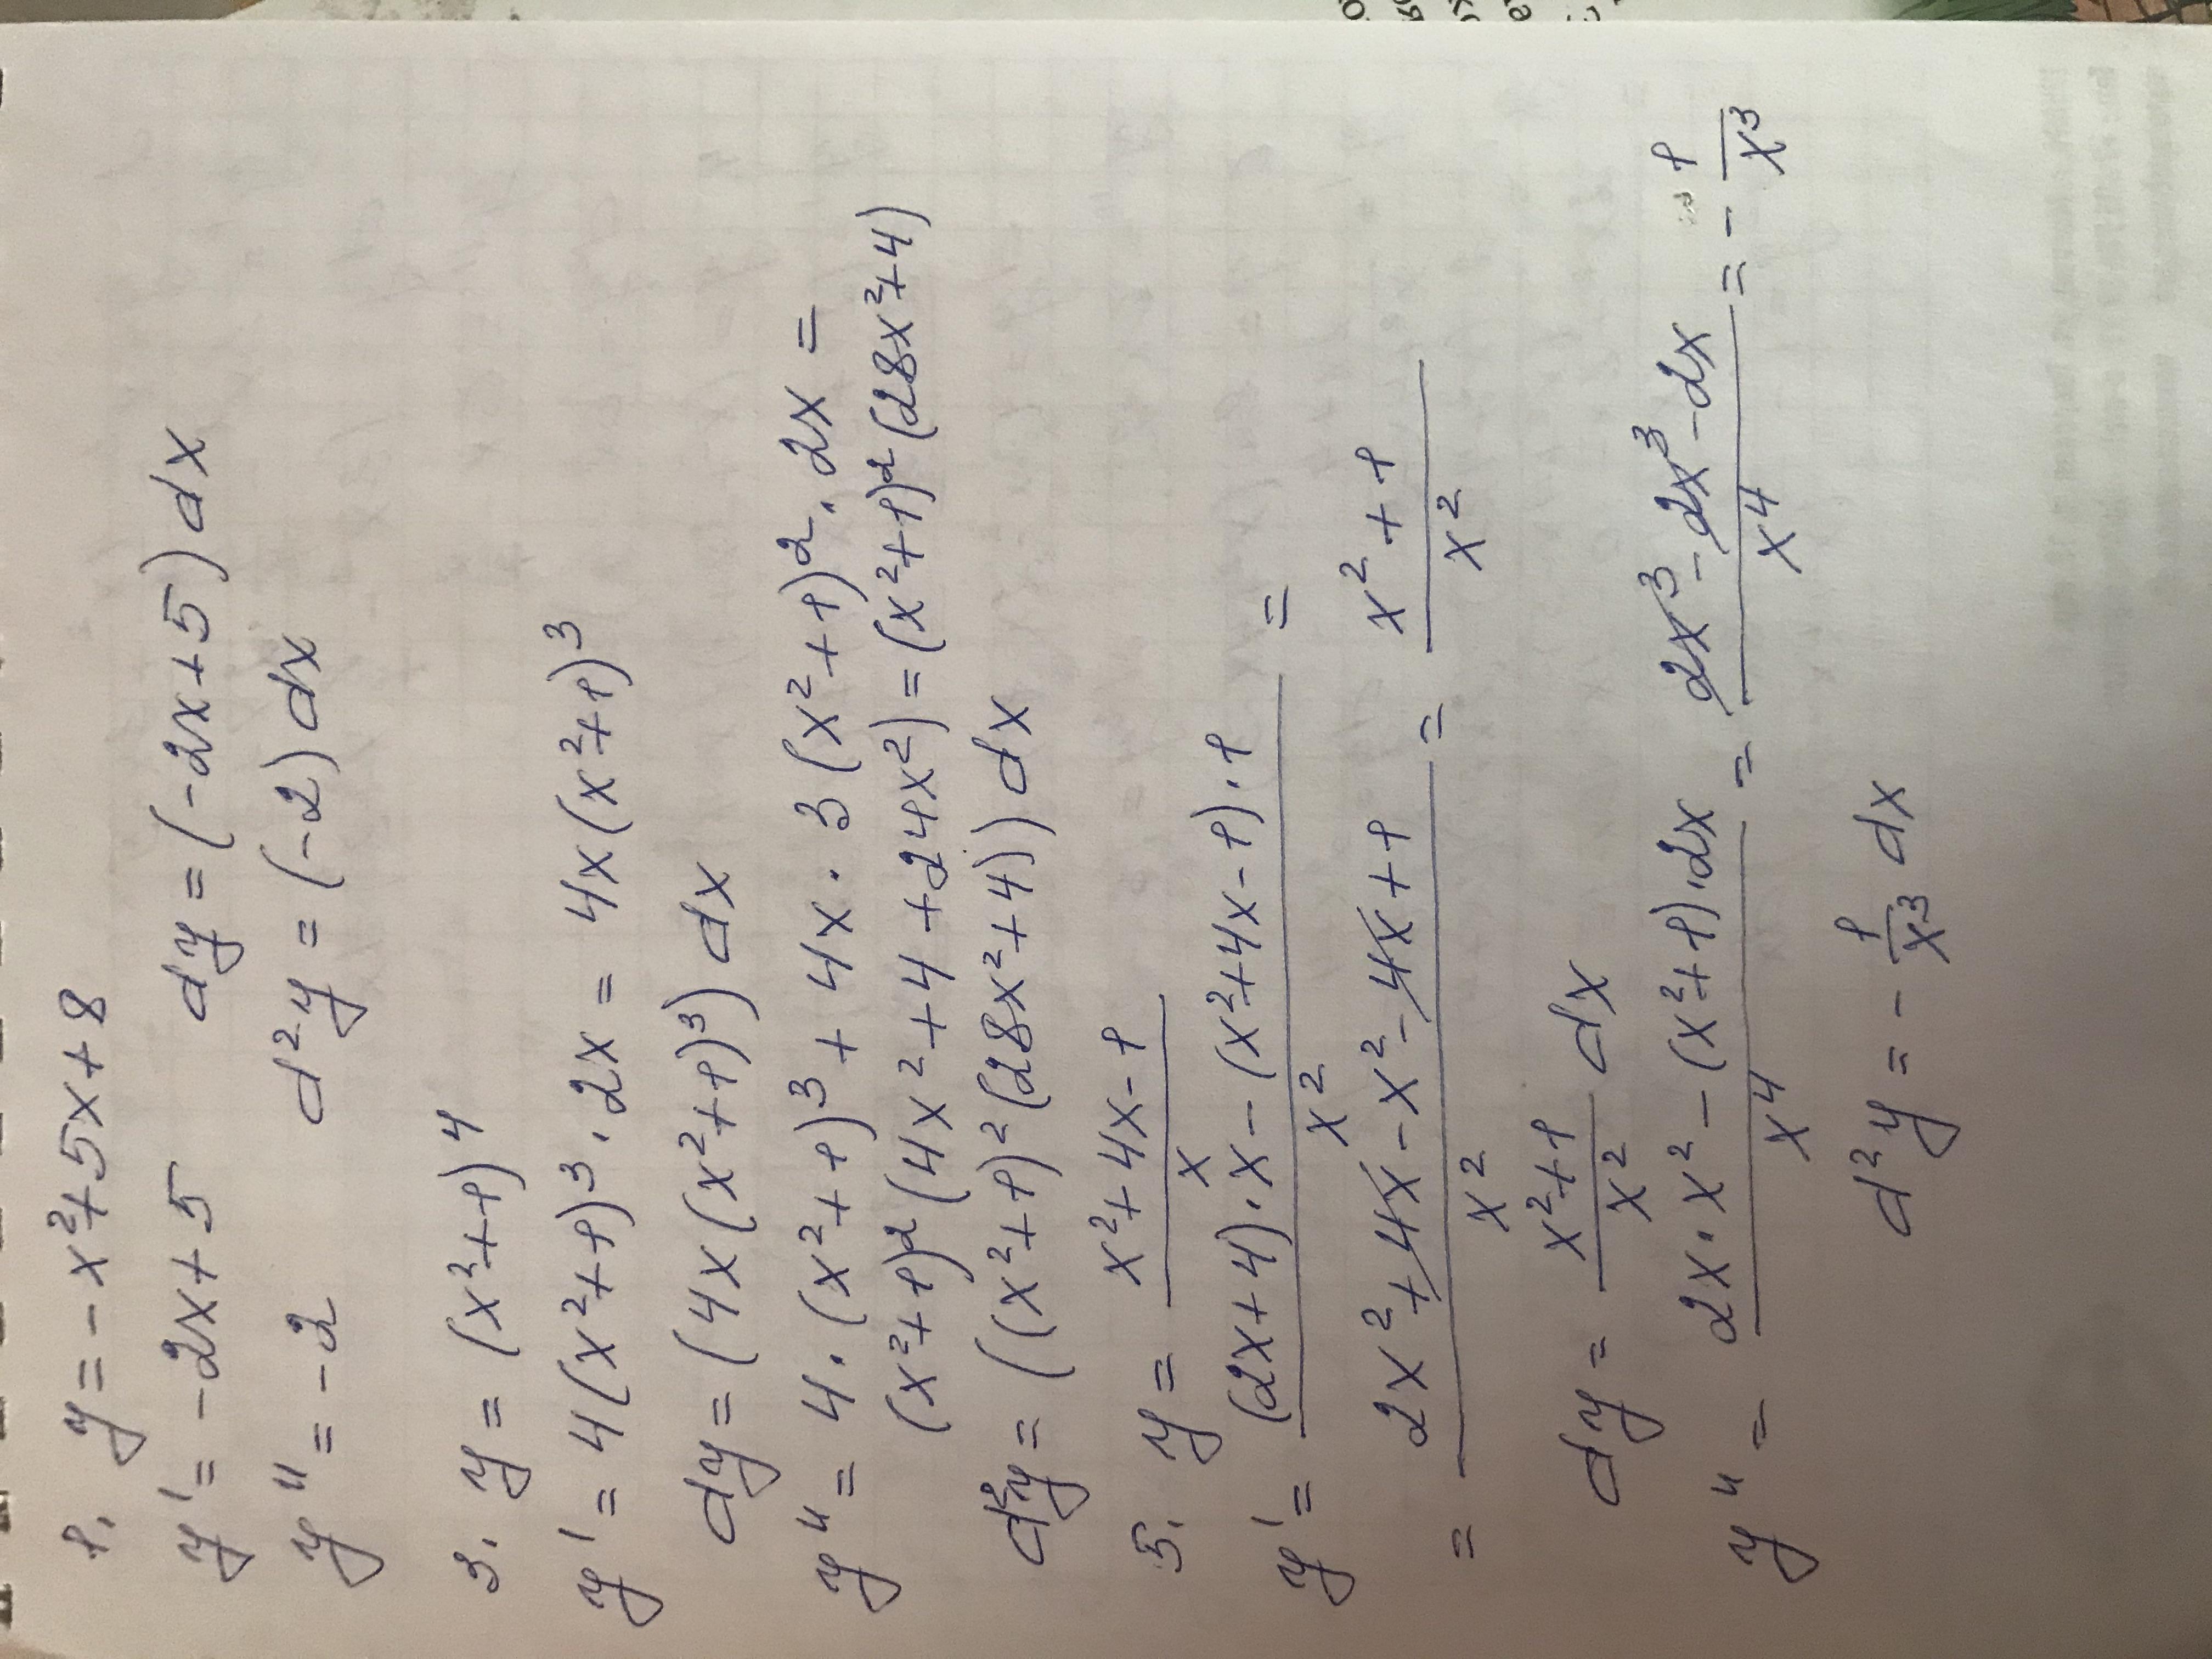 1. y = -x² + 5x + 8
y' = -2x + 5 dy = (-2x + 5) dx
y'' = -2 d²y = (-2) dx
3. y = (x² + 1)⁴
y' = 4(x² + 1)³ · 2x = 4x(x² + 1)³
dy = (4x(x² + 1)³) dx
y'' = 4 · (x² + 1)³ + 4x · 3(x² + 1)² · 2x =
(x² + 1)²(4x² + 4 + 24x²) = (x² + 1)²(28x² + 4)
d²y = ((x² + 1)²(28x² + 4)) dx
5. y = (x² + 4x - 1)/x
y' = ((2x + 4) · x - (x² + 4x - 1) · 1)/x² =
= (2x² + 4x - x² - 4x + 1)/x² = (x² + 1)/x²
dy = (x² + 1)/x² dx
y'' = (2x · x² - (x² + 1) · 2x)/x⁴ = (2x³ - 2x³ - 2x)/x⁴ = - 1/x³
d²y = - 1/x³ dx